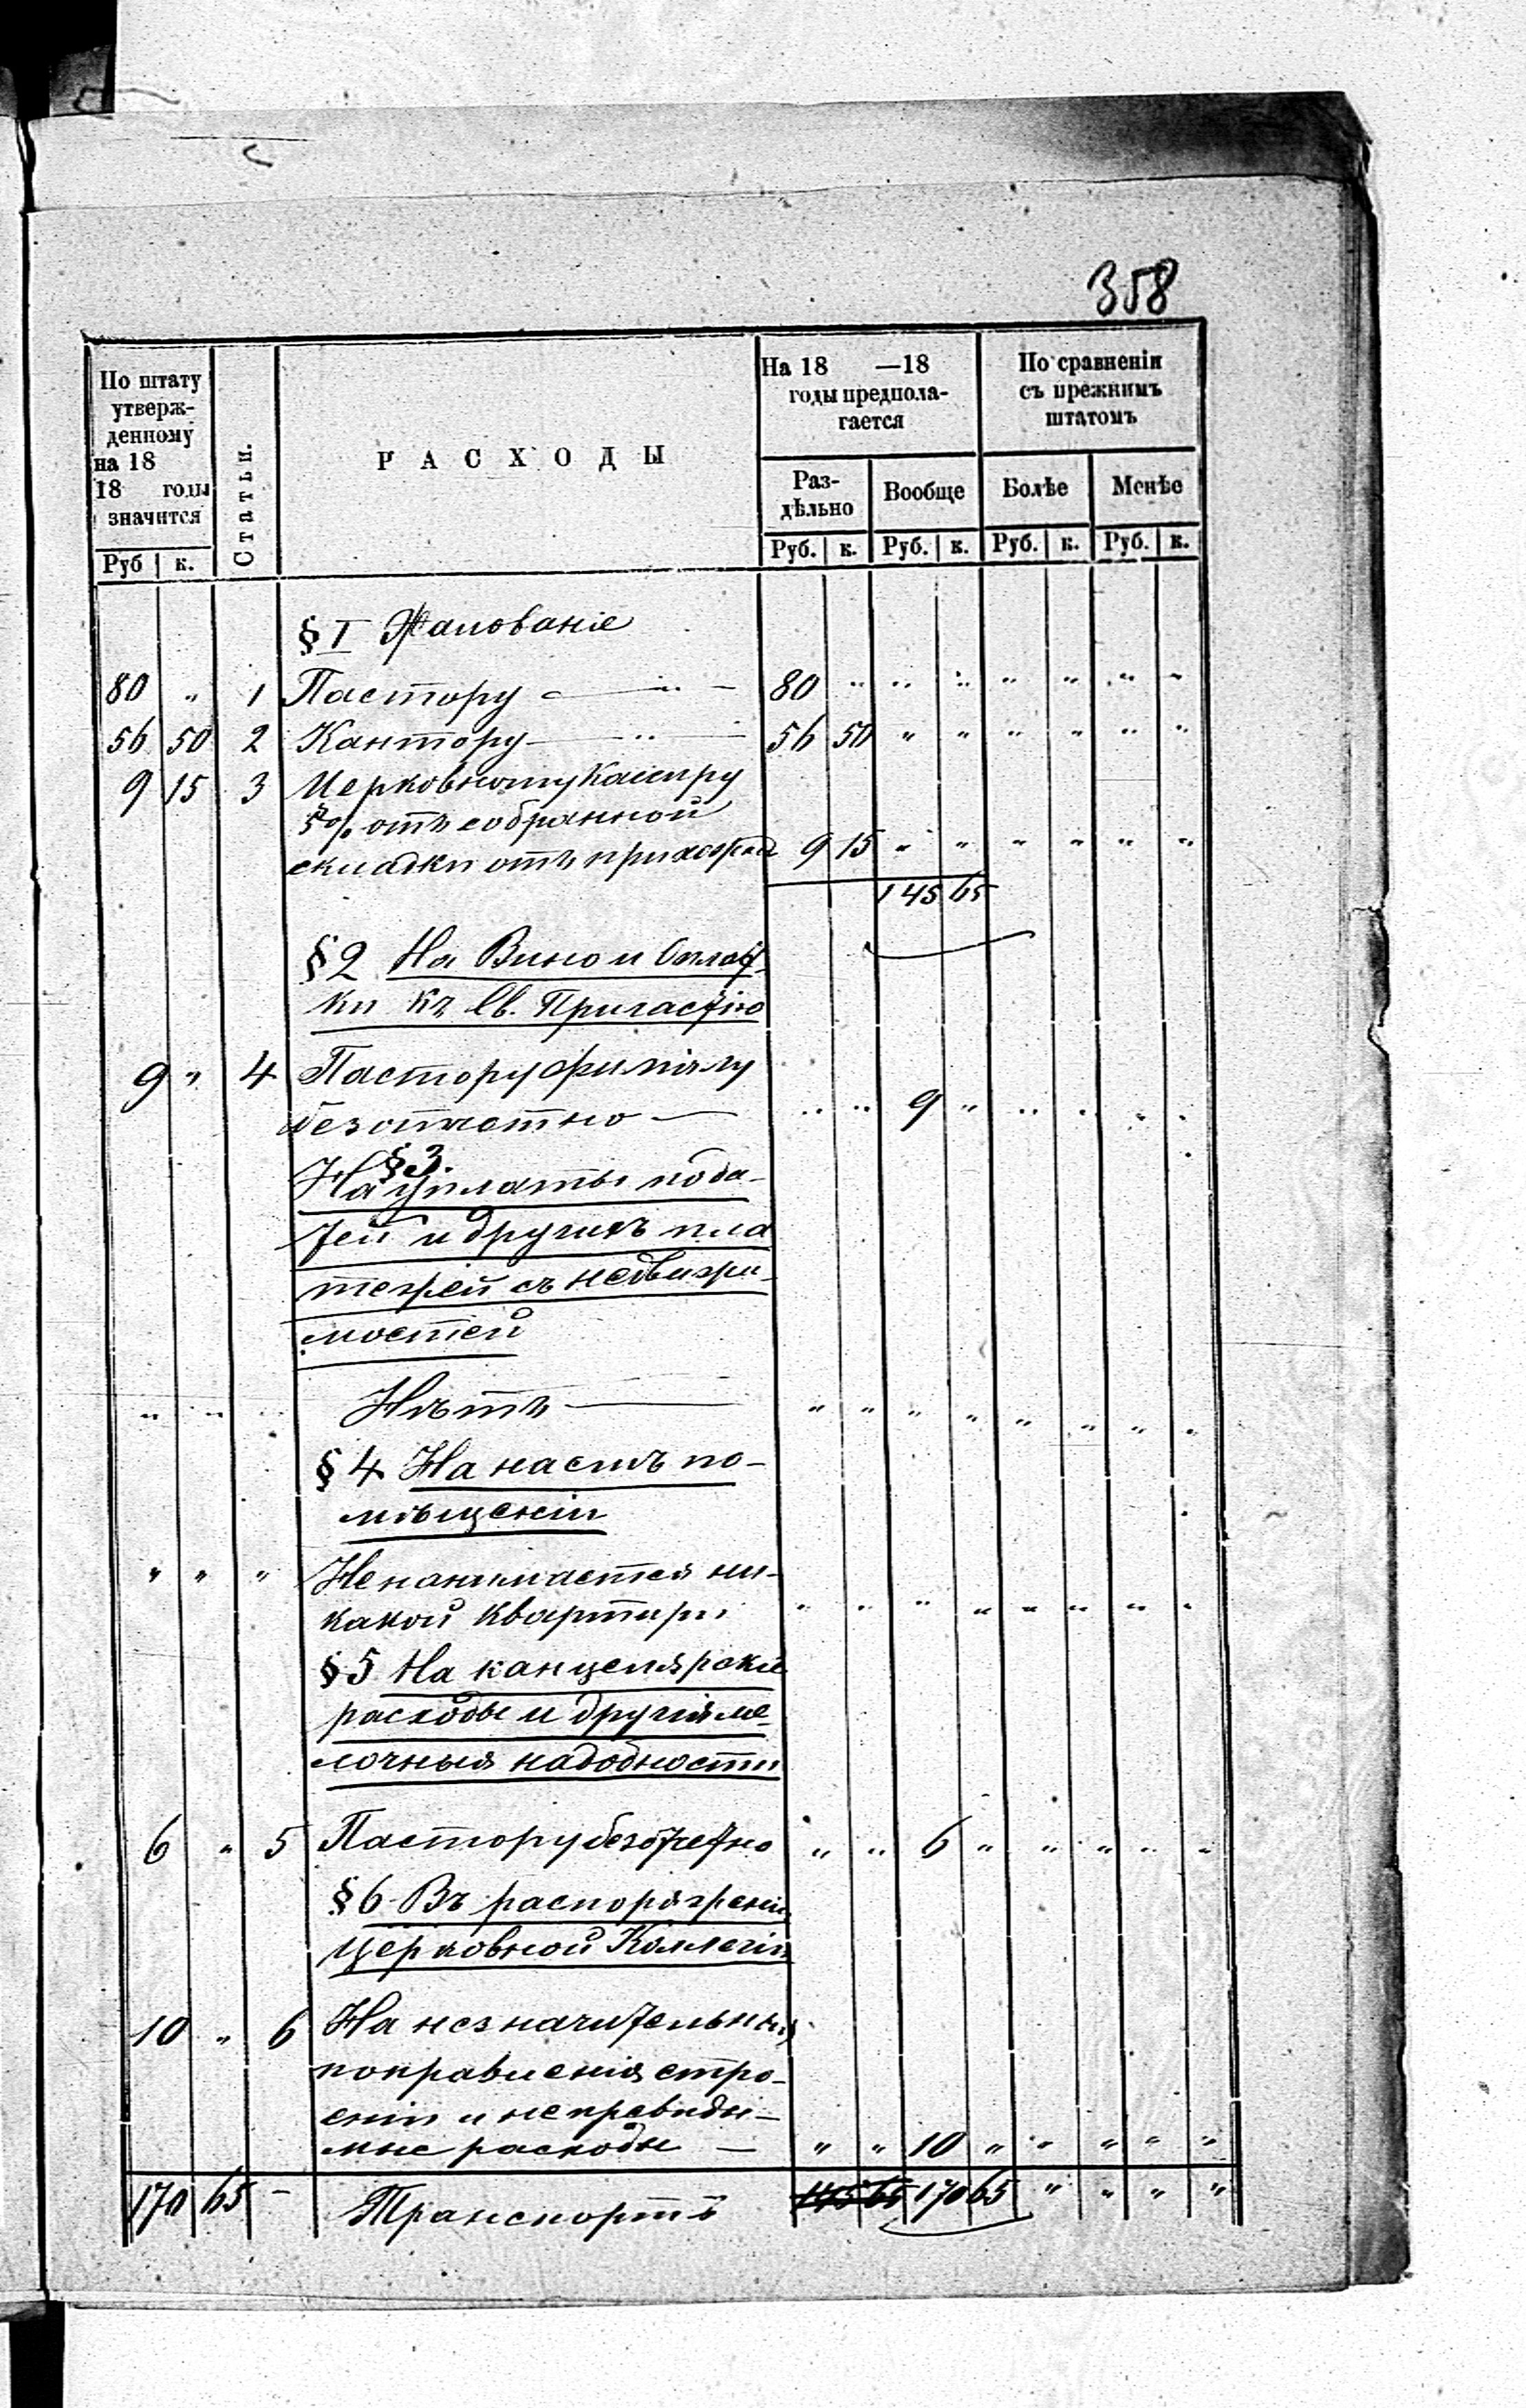 358
По штату утверж- денному на 18 18 годы значится
Статьи.
РАСХОДЫ
На 18 —18 годы предпола- гается
По сравненіи съ прежнимъ штатомъ
Раз- дѣльно Вообще Болѣе Менѣе
Руб к. Руб. к. Руб. к. Руб. к. Руб. к.
§ I Жалованіе
80 „ 1 Пастору — „ — 80 „ „ „ „ „ „ „
56 50 2 Кантору — „ — 56 50 „ „ „ „ „ „
9 15 3 Церковному Касиру
5% отъ собранной
складки отъ прихожанъ 9 15 „ „ „ „ „ „
145 65
§ 2 На Вино и Оплат-
ки къ Св. Причастію
9 „ 4 Пастору филіялу
безотчетно — „ „ 9 „ „ „ „ „
§ 3.
На уплаты пода-
тей и другихъ пла
тежей съ недвижи-
мостей
„ „ „ Нѣтъ — „ „ „ „ „ „ „ „
§ 4 На наемъ по-
мѣщеніи
„ „ „ Ненанимается ни-
какой квартиры „ „ „ „ „ „ „ „
§ 5 На канцелярскіе
расходы и другія ме-
лочныя надобности
6 „ 5 Пастору безотчетно „ „ 6 „ „ „ „ „
§ 6 Въ распоряженіи
Церковной Коллегіи
10 „ 6 На незначительныя
поправленія стро-
еніи и непревиди-
мые расходы — „ „ 10 „ „ „ „ „
170 65 — Транспортъ 145 65 170 65 „ „ „ „